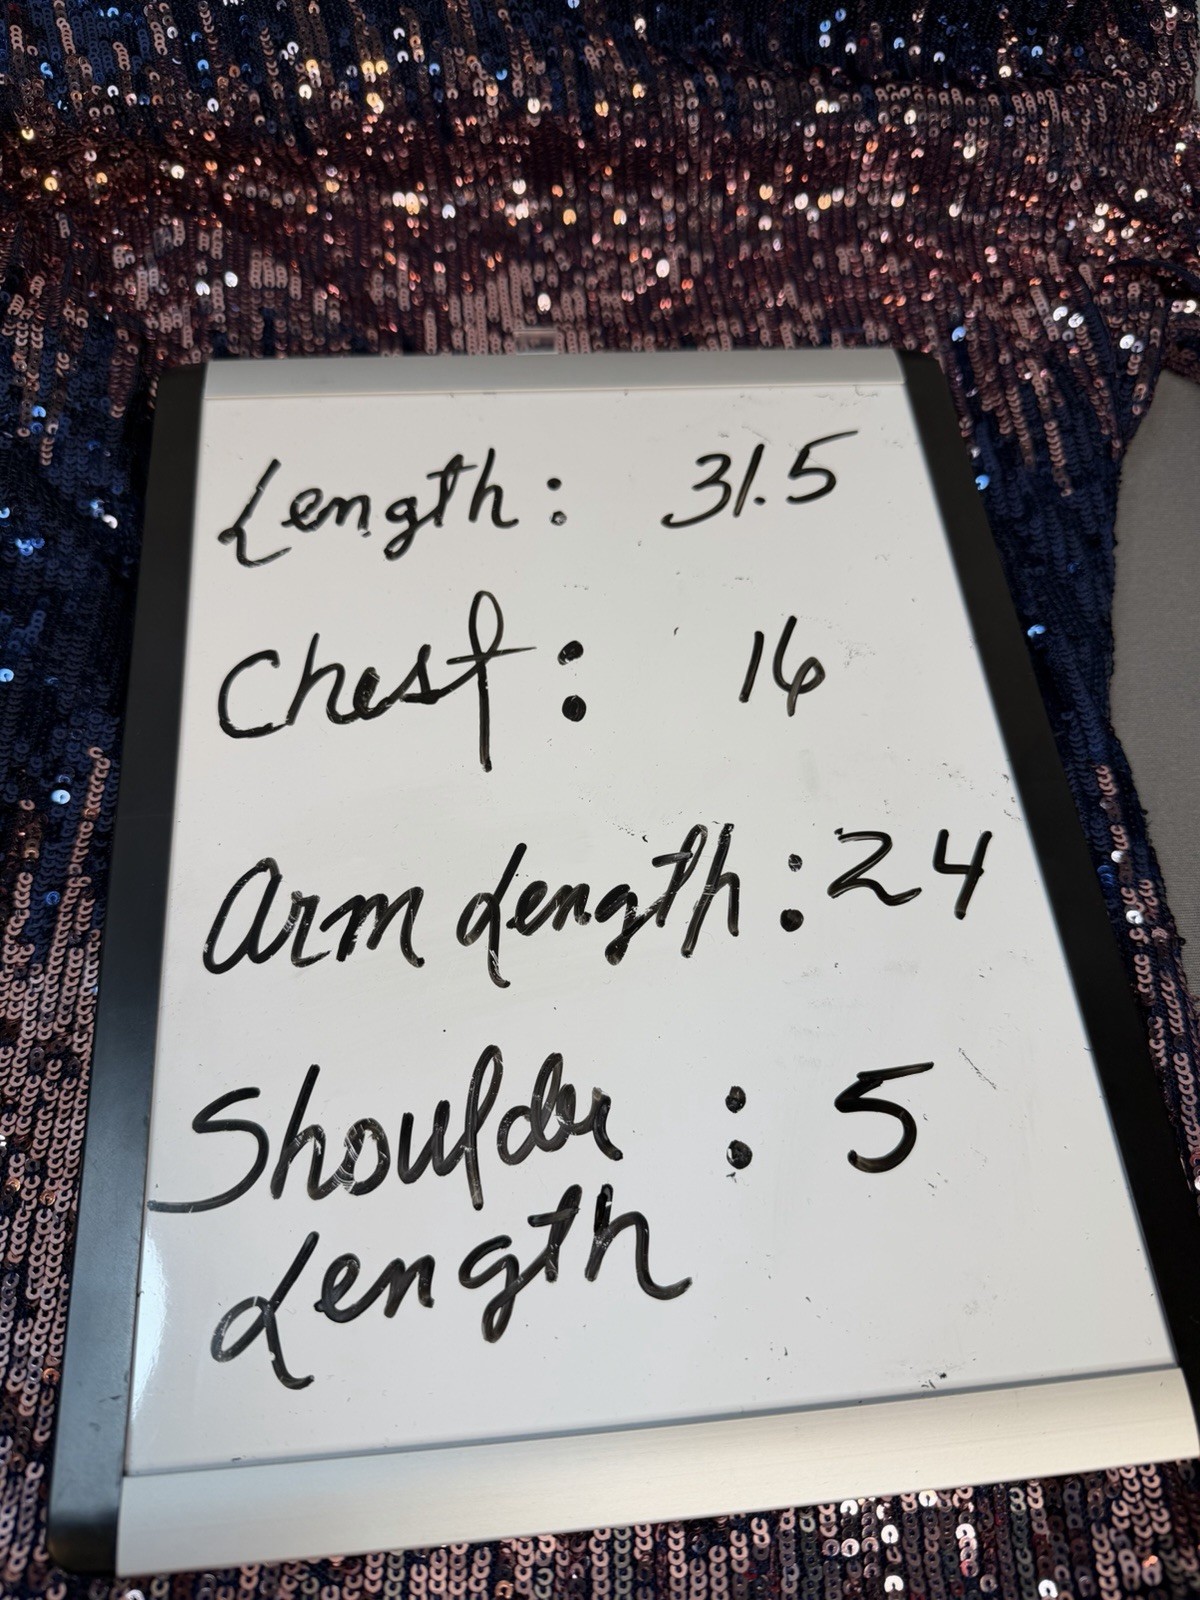 Length: 31.5
Chest: 16
Arm Length: 24
Shoulder : 5
Length